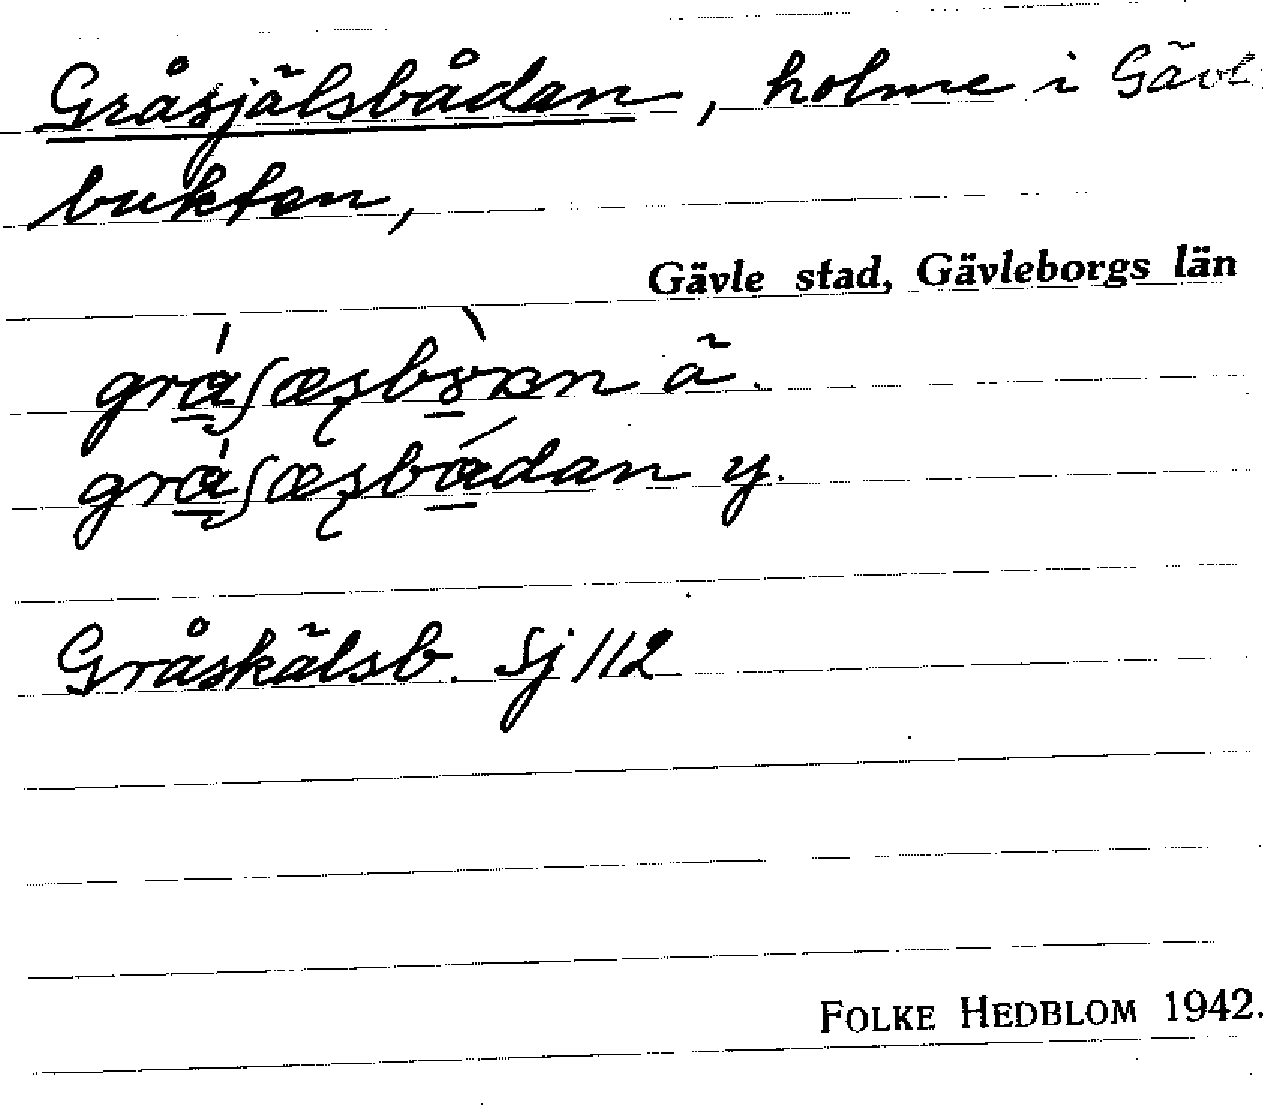 Gråsjälsbådan, holme i Gävle
bukten,
Gävle stad, Gävleborgs län
ä.
y.
Gråskälsb. Sj 112
FOLKE HEDBLOM 1942.